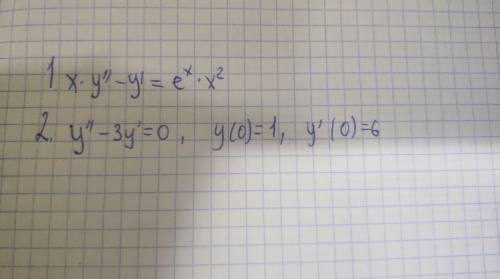 1 x·y''-y'=eˣ·x²
2. y''-3y'=0, y(0)=1, y'(0)=6